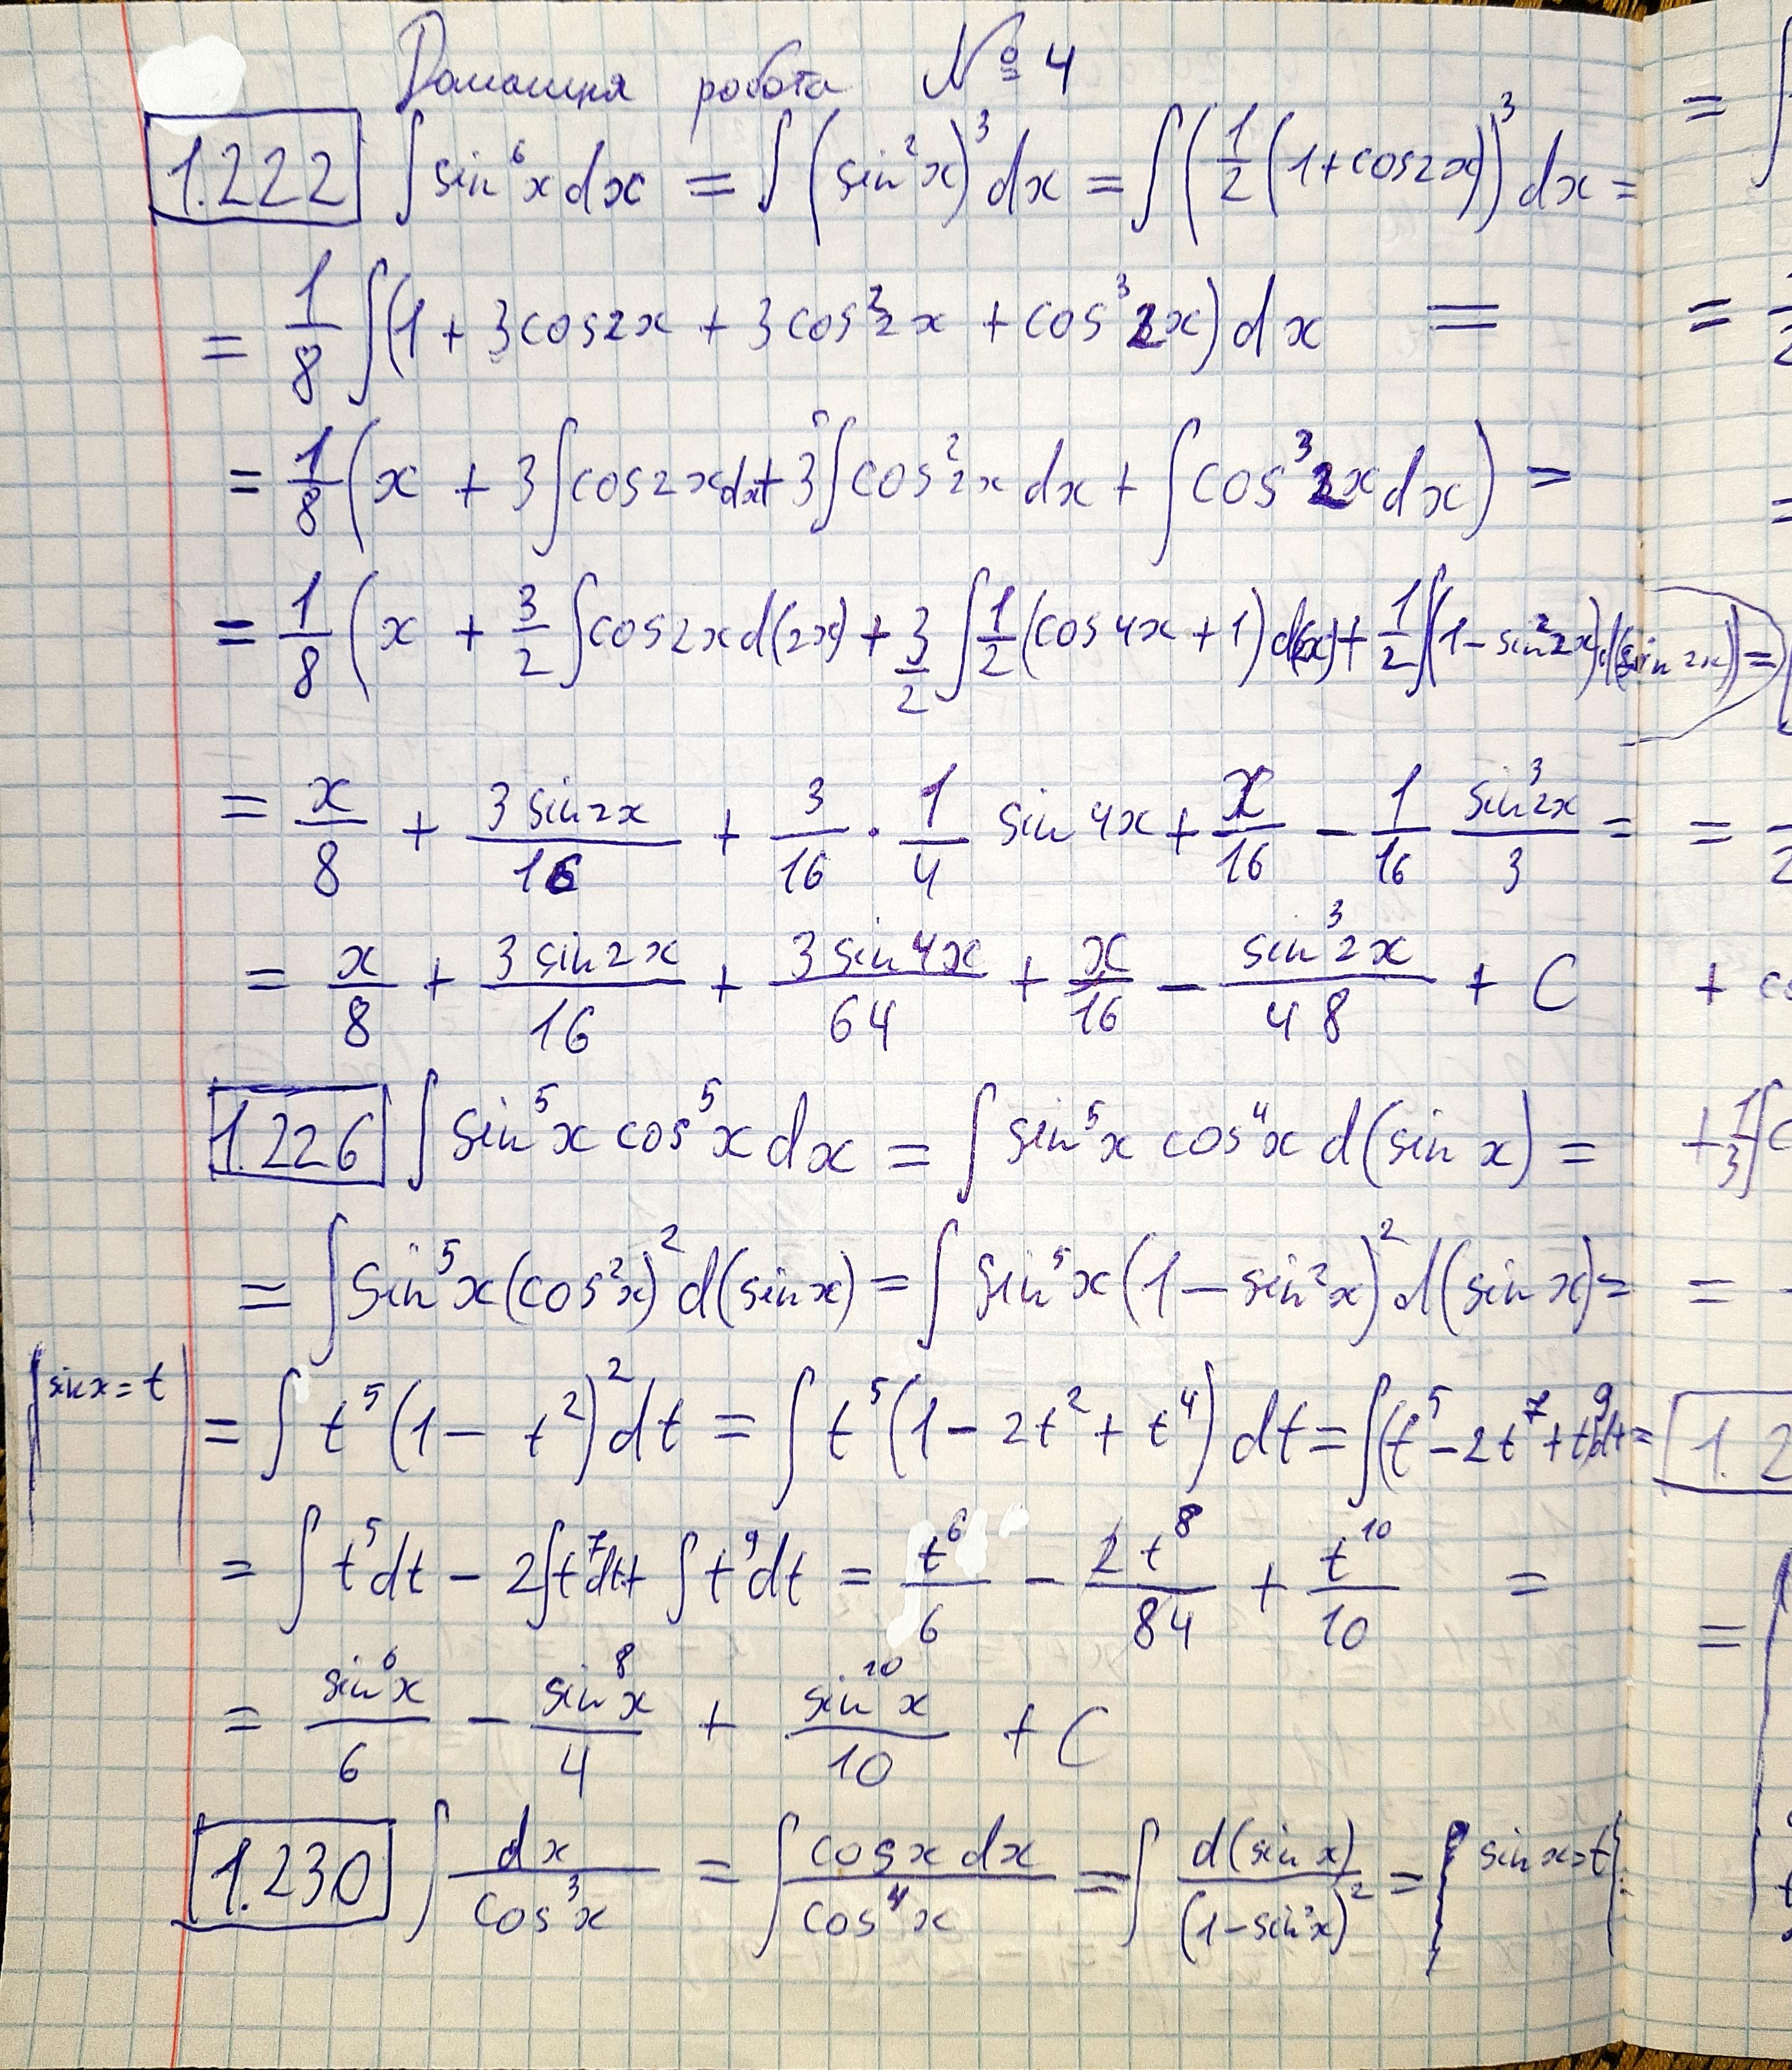 Домашня робота № 4
1.222 ∫ sin⁶x dx = ∫ (sin²x)³ dx = ∫ (1/2 (1+cos2x))³ dx =
= 1/8 ∫(1 + 3cos2x + 3cos²2x + cos³2x) dx =
= 1/8 (x + 3∫cos2xdx + 3∫cos²2x dx + ∫cos³2x dx) =
= 1/8 (x + 3/2 ∫cos2x d(2x) + 3/2 ∫ 1/2 (cos4x + 1) d(2x) + 1/2 ∫(1 - sin²2x) d(sin 2x)) =
= x/8 + 3 sin2x/16 + 3/16 · 1/4 sin 4x + x/16 - 1/16 sin³2x/3 =
= x/8 + 3 sin2x/16 + 3 sin4x/64 + x/16 - sin³2x/48 + C
1.226 ∫ sin⁵x cos⁵x dx = ∫ sin⁵x cos⁴x d(sin x) =
= ∫ sin⁵x (cos²x)² d(sinx) = ∫ sin⁵x (1 - sin²x)² d(sin x) =
|sin x = t| = ∫ t⁵ (1 - t²)² dt = ∫ t⁵ (1 - 2t² + t⁴) dt = ∫(t⁵ - 2t⁷ + t⁹)dt =
= ∫ t⁵dt - 2∫t⁷dt + ∫ t⁹dt = t⁶/6 - 2t⁸/84 + t¹⁰/10 =
= sin⁶x/6 - sin⁸x/4 + sin¹⁰x/10 + C
1.230 ∫ dx/cos³x = ∫ cosx dx/cos⁴x = ∫ d(sin x)/(1-sin²x)² = |sin x = t| =